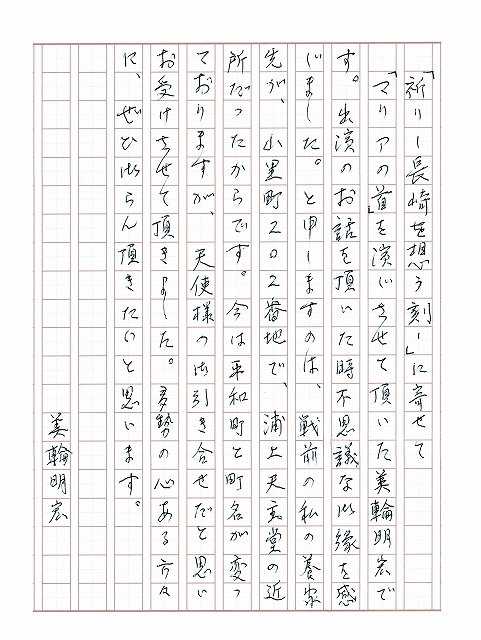 「祈り―長崎を想う刻―」に寄せて
「マリアの首」を演じさせて頂いた美輪明宏で
す。出演のお話を頂いた時不思議な御縁を感
じました。と申しますのは、戦前の私の養家
先が、山里町202番地で、浦上天主堂の近
所だったからです。今は平和町と町名が変っ
ておりますが、天使様のお引き合せだと思い
お受けさせて頂きました。多勢の心ある方々
に、ぜひ御らん頂きたいと思います。
美輪明宏